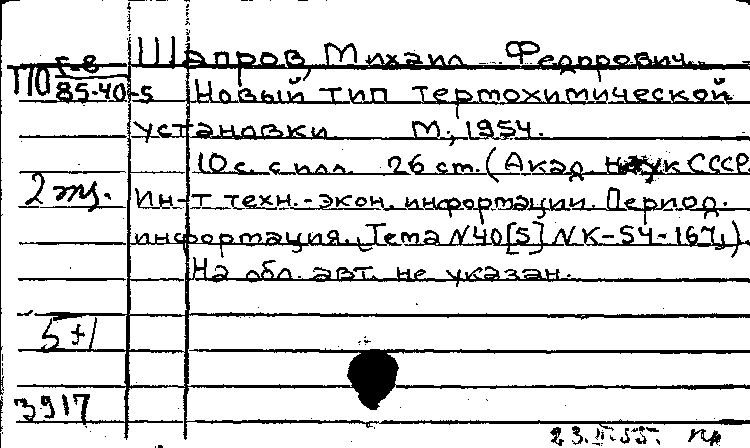 Шапров, Михаил Федорович.
П0 85-40-5 Новый тип термохимической
установки М., 1954.
10 с. с илл. 26 см. (Акад. наук СССР.
2 экз. Ин-т техн.-экон. информации. Период.
информация. Тема N40[5] NК-54-167,).
На обл. авт. не указан.
5+1
3917
23.II.55.